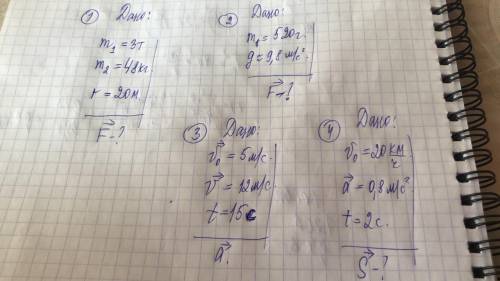 ① Дано:
m₁ = 3т
m₂ = 48кг.
r = 20м.
F⃗-?
② Дано:
m₁ = 520г.
g = 9,8 м/с².
F⃗т-?
③ Дано:
v⃗₀ = 5м/с.
v⃗ = 12м/с.
t = 15с
a⃗?
④ Дано:
v⃗₀ = 20 км/ч
a⃗ = 0,8 м/с²
t = 2с.
S⃗-?